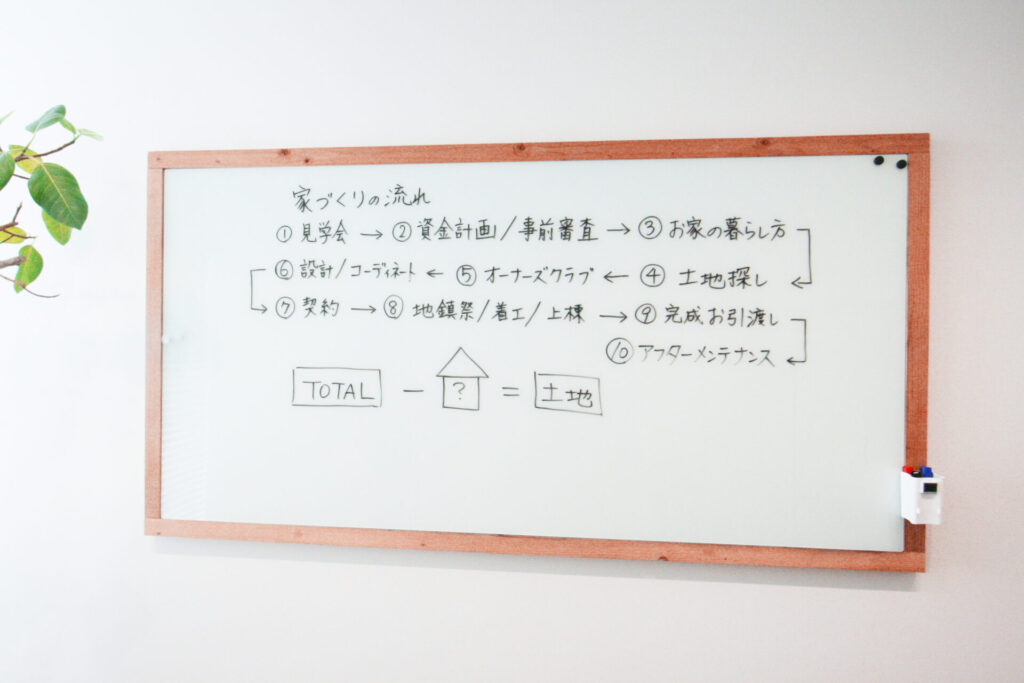 家づくりの流れ
① 見学会 → ② 資金計画/事前審査 → ③ お家の暮らし方
⑥ 設計/コーディネート ← ⑤ オーナーズクラブ ← ④ 土地探し
⑦ 契約 → ⑧ 地鎮祭/着工/上棟 → ⑨ 完成お引渡し
⑩ アフターメンテナンス
TOTAL - ? = 土地